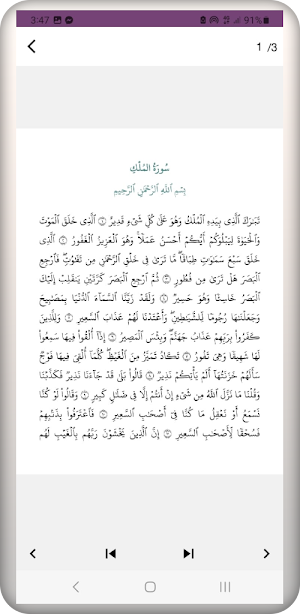 3:47 91%
1 /3
سُورَةُ المُلْكِ
بِسْمِ ٱللَّهِ ٱلرَّحْمَٰنِ ٱلرَّحِيمِ
تَبَٰرَكَ ٱلَّذِى بِيَدِهِ ٱلْمُلْكُ وَهُوَ عَلَىٰ كُلِّ شَىْءٍ قَدِيرٌ ١ ٱلَّذِى خَلَقَ ٱلْمَوْتَ
وَٱلْحَيَوٰةَ لِيَبْلُوَكُمْ أَيُّكُمْ أَحْسَنُ عَمَلًا وَهُوَ ٱلْعَزِيزُ ٱلْغَفُورُ ٢ ٱلَّذِى
خَلَقَ سَبْعَ سَمَٰوَٰتٍ طِبَاقًا مَّا تَرَىٰ فِى خَلْقِ ٱلرَّحْمَٰنِ مِن تَفَٰوُتٍ فَٱرْجِعِ
ٱلْبَصَرَ هَلْ تَرَىٰ مِن فُطُورٍ ٣ ثُمَّ ٱرْجِعِ ٱلْبَصَرَ كَرَّتَيْنِ يَنقَلِبْ إِلَيْكَ
ٱلْبَصَرُ خَاسِئًا وَهُوَ حَسِيرٌ ٤ وَلَقَدْ زَيَّنَّا ٱلسَّمَآءَ ٱلدُّنْيَا بِمَصَٰبِيحَ
وَجَعَلْنَٰهَا رُجُومًا لِّلشَّيَٰطِينِ وَأَعْتَدْنَا لَهُمْ عَذَابَ ٱلسَّعِيرِ ٥ وَلِلَّذِينَ
كَفَرُوا۟ بِرَبِّهِمْ عَذَابُ جَهَنَّمَ وَبِئْسَ ٱلْمَصِيرُ ٦ إِذَآ أُلْقُوا۟ فِيهَا سَمِعُوا۟
لَهَا شَهِيقًا وَهِىَ تَفُورُ ٧ تَكَادُ تَمَيَّزُ مِنَ ٱلْغَيْظِ كُلَّمَآ أُلْقِىَ فِيهَا فَوْجٌ
سَأَلَهُمْ خَزَنَتُهَآ أَلَمْ يَأْتِكُمْ نَذِيرٌ ٨ قَالُوا۟ بَلَىٰ قَدْ جَآءَنَا نَذِيرٌ فَكَذَّبْنَا
وَقُلْنَا مَا نَزَّلَ ٱللَّهُ مِن شَىْءٍ إِنْ أَنتُمْ إِلَّا فِى ضَلَٰلٍ كَبِيرٍ ٩ وَقَالُوا۟ لَوْ كُنَّا
نَسْمَعُ أَوْ نَعْقِلُ مَا كُنَّا فِىٓ أَصْحَٰبِ ٱلسَّعِيرِ ١٠ فَٱعْتَرَفُوا۟ بِذَنۢبِهِمْ
فَسُحْقًا لِّأَصْحَٰبِ ٱلسَّعِيرِ ١١ إِنَّ ٱلَّذِينَ يَخْشَوْنَ رَبَّهُم بِٱلْغَيْبِ لَهُم